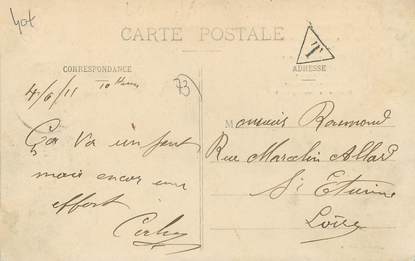 40f
CARTE POSTALE
T
CORRESPONDANCE
ADRESSE
4/6/11 10 heures
73
Ça Va un peu
mais encor un
effort
Monsieur Raymond
Rue Marcelin Allard
St Etienne
Loire